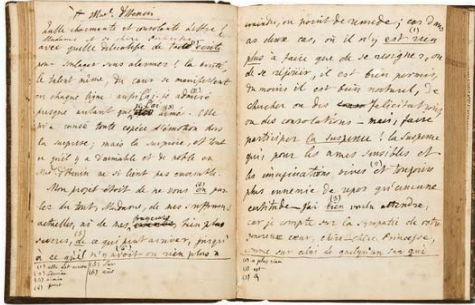 A Made d'Henin
Quelle charmante et consolante lettre!
Madame
avec quelle délicatesse de tact écrite
pour soulager vos alarmes! la bonté,
le talent même, du cœur se manifestent
en chaque ligne
presque autant que
m'a causé toute espèce d'émotion dans
la surprise; mais la surprise, est tout
ce qu'il y a d'aimable et de noble en
Made d'Henin ne se lient pas ensemble.
Mon projet étoit de ne vous (3) en par
ler du tout, Madame, de mes souffrances
actuelles, ni de mes bien plus
de ce qui peut arriver, jusqu'à
à ce qu'il n'y avoit ou rien plus à
(1)
(2)
(3) aimée
(4) peut
(5)
(6)
craindre, ou point de remede; car dans
ces deux cas, où il n'y est rien
plus à faire que de se resigner, ou
de se rejouir, il est bien permis,
du moins il est bien naturel, de
chercher ou des felicitations
ou des consolations - mais, faire
participer la suspence! la suspence
qui, pour les ames sensibles et
les imaginations vives (2) et toujours
plus ennemie de repos qu'aucune
certitude - j'ai bien voulu attendre,
car je compte sur la sympatie de votre
genereuse cœur, chere - chere Princesse,
comme sur celui de quelqu'un sur qui
(1) a plus rien
(2) est
(3)